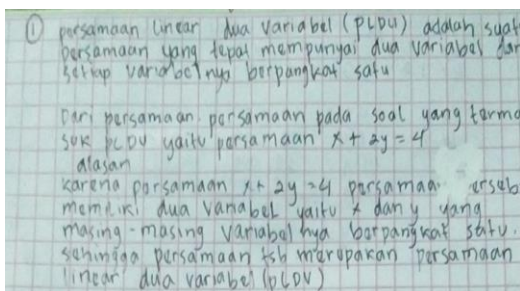 ① persamaan linear dua variabel (PLDV) adalah suat
persamaan yang tepat mempunyai dua variabel dan
setiap variabelnya berpangkat satu
Dari persamaan persamaan pada soal yang terma
suk PLDV yaitu persamaan x + 2y = 4
alasan
karena persamaan x + 2y = 4 persamaa erseb
memiliki dua variabel yaitu x dan y yang
masing-masing variabelnya berpangkat satu.
sehingga persamaan tsb merupakan persamaan
linear dua variabel (PLDV)